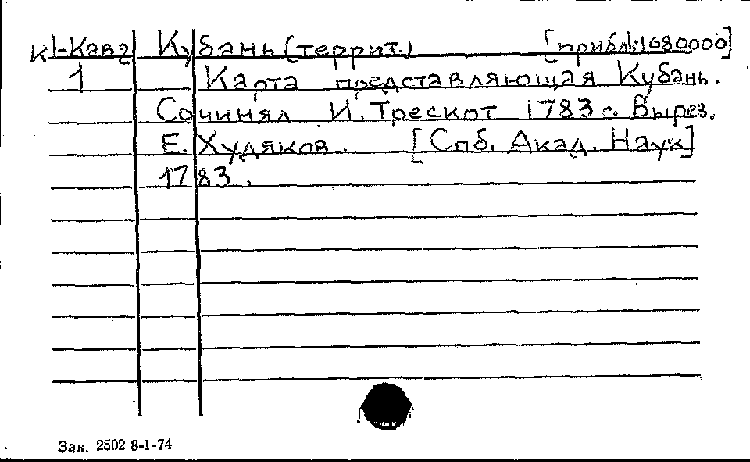 К1-Кав2 Кубань (террит.) [прибл. 1:1680000]
1 Карта представляющая Кубань.
Сочинял И. Трескот 1783 г. Вырез.
Е. Худяков. [Спб. Акад. Наук]
1783.
Зак. 2502 8-1-74